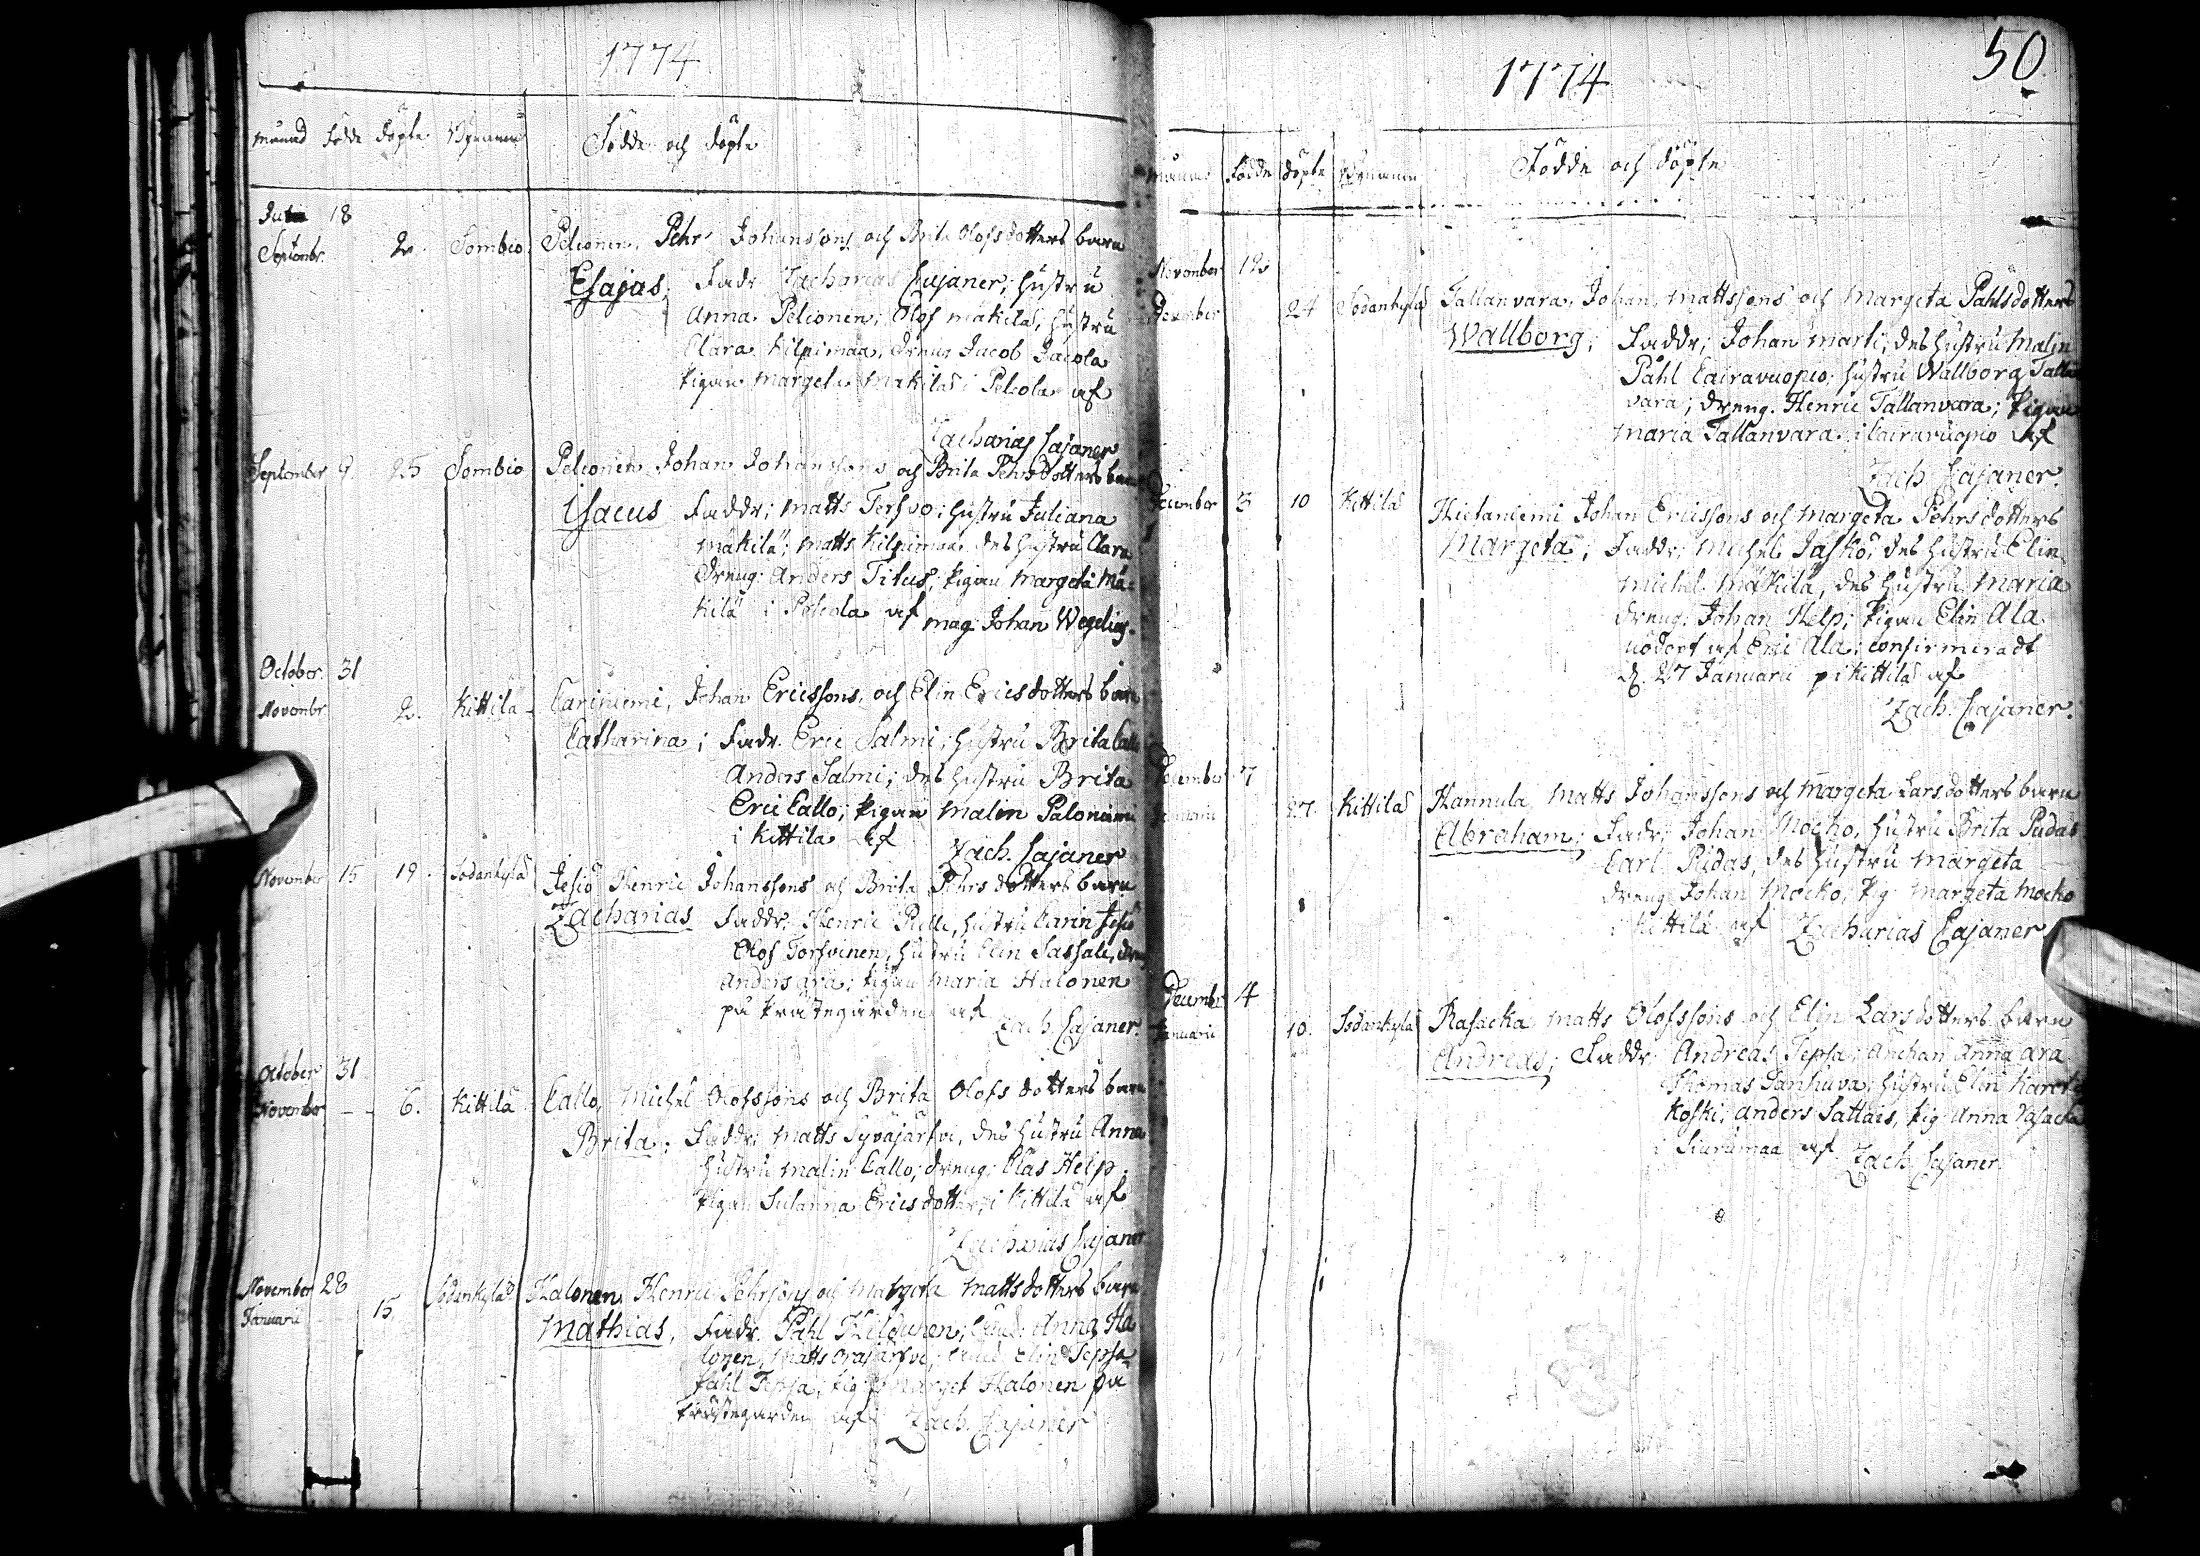 1774
månad Födde döpte Bynamen Födde och döpte
18
Septembr. 2. Sombio Pelconen, Pehr Johanssons och Brita Olofsdotters barn
Esajas; Fadr Zacharias Cajaner; hustru
Anna Pelconen; Olof Makila, hustru
Clara Kilpimaa, dreng Jacob Jacola
pigan Margeta Makila i Pelcola af
Zacharias Cajaner
September 9. 25 Sombio Pelconen Johan Johanssons och Brita Pehrsdotters barn
Isacus Faddr; Matts Terfvo; hustru Juliana
Makilä; Matts Kilpimaa des hustru Clara
dreng: Anders Titus; pigan Margeta Mä-
kilä i Pelcola af mag Johan Wegelius.
October 31
Novembr 2. Kittilä Cariniemi, Johan Ericssons, och Elin Ericsdotters barn
Catharina; Fadr. Eric Salmi; hustru Brita Callo
Anders Salmi; des hustru Brita
Eric Callo; pigan Malin Paloniemi
i Kittila af Zach. Cajaner
November 15 19. Sodankylä Jesiö Henric Johanssons och Brita Pehrs dotters barn
Zacharias Faddr. Henric Pulle, hustru Carin Jesiö
Olof Torfvinen, hustru Elin Sassali, dreng
Anders Ara; pigan Maria Halonen
på Prästegården af Zach. Cajaner.
October 31
November - - 6. Kittilä Callo, Michel Olofssons och Brita Olofs dotters barn
Brita; Faddr; Matts Syväjärfvi, des hustru Anna
hustru Malin Callo; dreng: Clas Help
pigan Susanna Ericsdotter, i Kittilä af
Zacharias Cajaner
November 28 Sodankylä Halonen Henric Pehrsons och Margeta Mattsdotters barn
Januarii 15.
Mathias, Fadr. Påhl Hilduinen; Anna Ha
lonen, Matts Orajärfvi; Elin Tepsa
Påhl Tepsa; pig Marget Halonen på
Prästegården af Zach. Cajaner
50
1774
månad Födde döpte Bynamen Födde och döpte
November 12
December 24 Sodankylä Tallanvara, Johan, Mattssons och Margeta Påhlsdotters
Wallborg; Faddr; Johan Marti; des hustru Malin
Påhl Cairavuopio; hustru Wallborg Tallan
vara; dreng. Henric Tallanvara; pigan
Maria Tallanvara. i Cairavuopio af
Zach Cajaner.
December 3 10 Kittilä Hietaniemi Johan Ericssons och Margeta Pehrsdotters
Margeta; Faddr; Michel Jasko; des hustru Elin
Michel Mäkilä, des hustru Maria
dreng. Johan Help; pigan Elin Ala
nödöpt af Eric Ala; confirmeradt
d. 27 Januarii på Kittilä af
Zach. Cajaner.
December 7
Januarii 27. Kittilä Hannula, Matts Johanssons och Margeta Larsdotters barn
Abraham; Fadr; Johan Mocko, hustru Brita Pudas
Carl Pudas, des hustru Margeta
dreng Johan Mocko; pig Margeta Mocko
i Kittilä af Zacharias Cajaner
December 4
Januarii 10. Sodankylä Rasacka Matts Olofssons och Elin Larsdotters barn
Andreas; Faddr. Andreas Tepsa; Anna Ara
Thomas Sanhuva; hustru Elin Karet
koski; Anders Sattais, pig Anna Rasacka
i af Zach Cajaner.